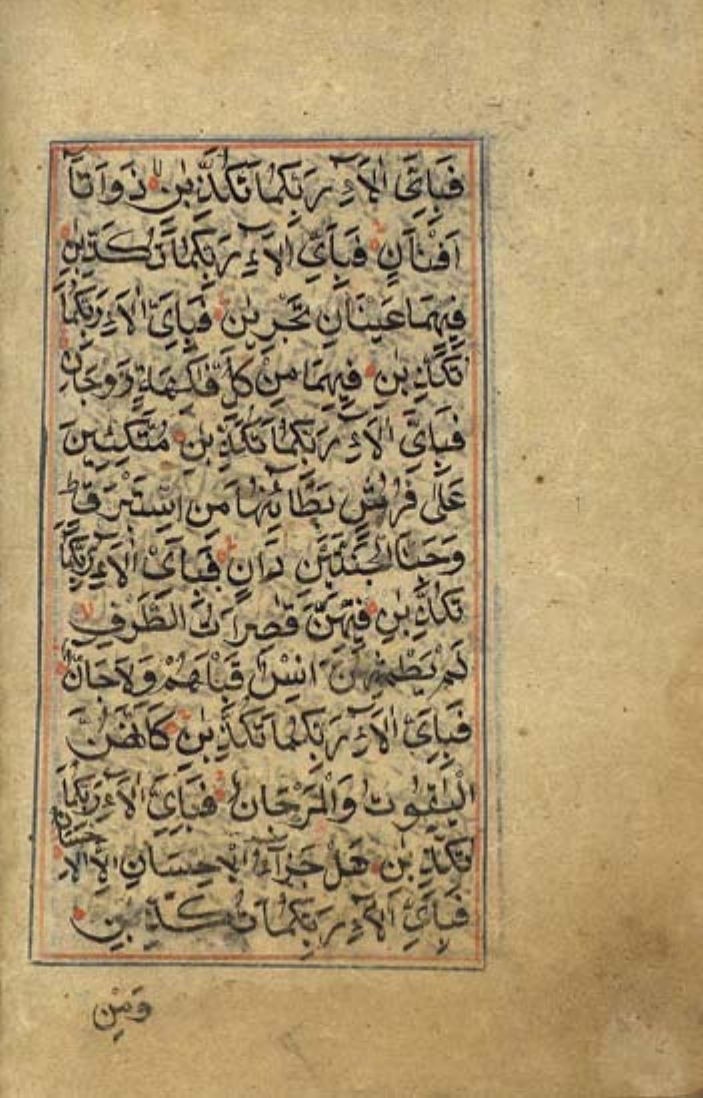 فَبِاَيِّ اٰلَآءِ رَبِّكُمَا تُكَذِّبٰنِ ذَوَاتَآ
اَفْنَانٍ فَبِاَيِّ اٰلَآءِ رَبِّكُمَا تُكَذِّبٰنِ
فِيْهِمَا عَيْنَانِ تَجْرِيٰنِ فَبِاَيِّ اٰلَآءِ رَبِّكُمَا
تُكَذِّبٰنِ فِيْهِمَا مِنْ كُلِّ فَاكِهَةٍ زَوْجَانِ
فَبِاَيِّ اٰلَآءِ رَبِّكُمَا تُكَذِّبٰنِ مُتَّكِئِيْنَ
عَلٰى فُرُشٍ بَطَآئِنُهَا مِنْ اِسْتَبْرَقٍ ط
وَجَنَا الْجَنَّتَيْنِ دَانٍ فَبِاَيِّ اٰلَآءِ رَبِّكُمَا
تُكَذِّبٰنِ فِيْهِنَّ قٰصِرَاتُ الطَّرْفِ لا
لَمْ يَطْمِثْهُنَّ اِنْسٌ قَبْلَهُمْ وَلَا جَآنٌّ
فَبِاَيِّ اٰلَآءِ رَبِّكُمَا تُكَذِّبٰنِ كَاَنَّهُنَّ
الْيَاقُوْتُ وَالْمَرْجَانُ فَبِاَيِّ اٰلَآءِ رَبِّكُمَا
تُكَذِّبٰنِ هَلْ جَزَآءُ الْاِحْسَانِ اِلَّا الْاِحْسَانُ
فَبِاَيِّ اٰلَآءِ رَبِّكُمَا تُكَذِّبٰنِ
وَمِنْ